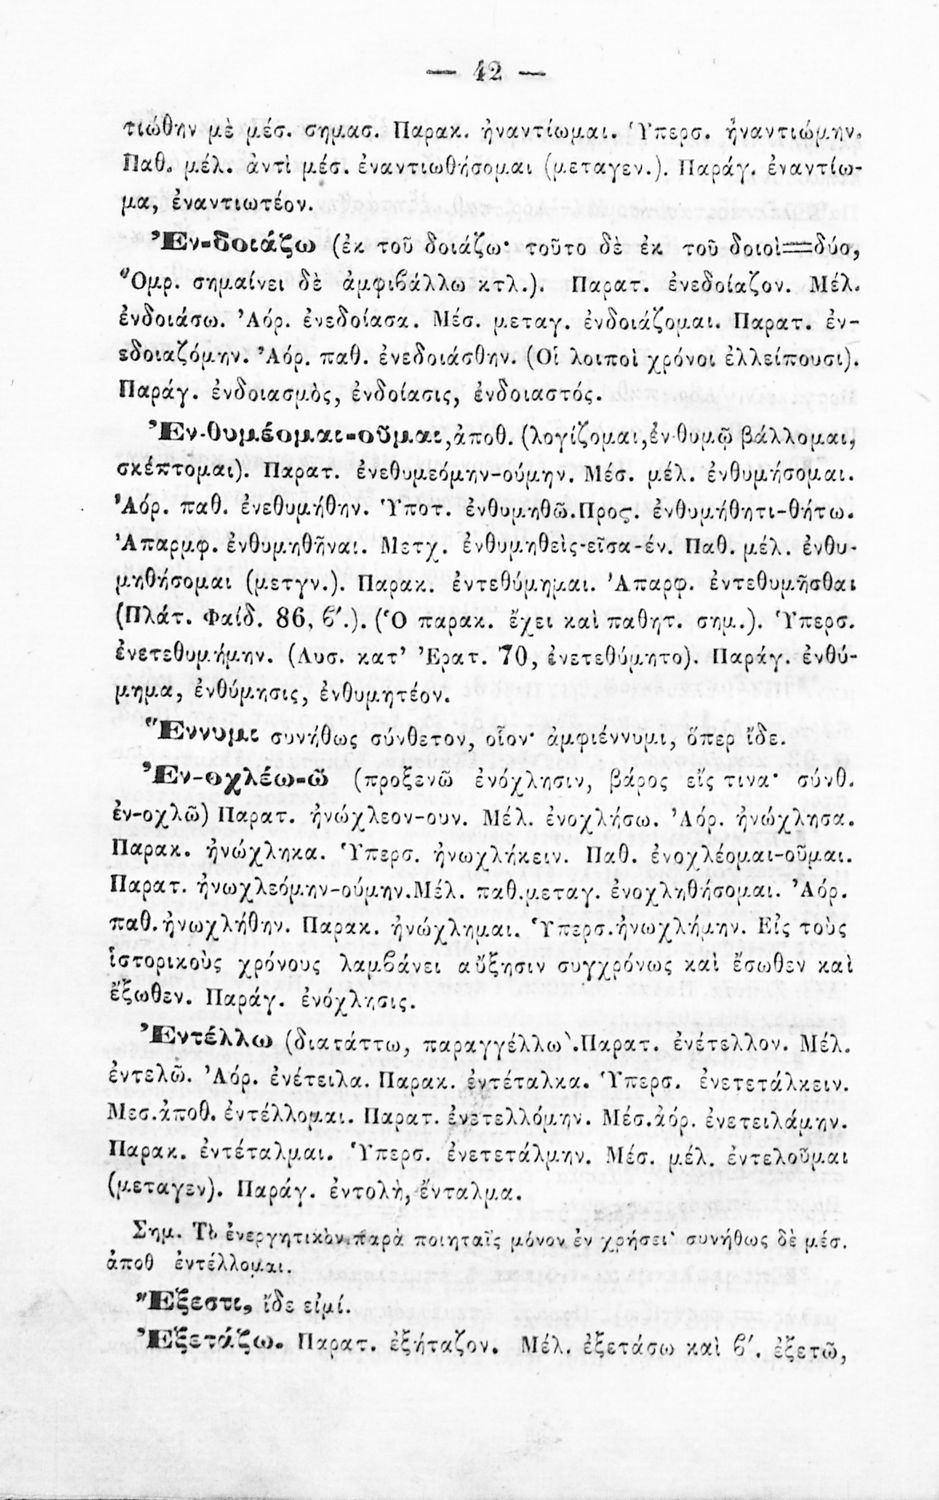 — 42 —
τιώθην μὲ μέσ. σημασ. Παρακ. ἠναντίωμαι. Ὑπερσ. ἠναντιώμην.
Παθ. μέλ. ἀντὶ μέσ. ἐναντιωθήσομαι (μεταγεν.). Παράγ. ἐναντίω-
μα, ἐναντιωτέον.
Ἐν-δοιάζω (ἐκ τοῦ δοιάζω· τοῦτο δὲ ἐκ τοῦ δοιοὶ=δύο,
Ὅμρ. σημαίνει δὲ ἀμφιβάλλω κτλ.). Παρατ. ἐνεδοίαζον. Μέλ.
ἐνδοιάσω. Ἀόρ. ἐνεδοίασα. Μέσ. μεταγ. ἐνδοιάζομαι. Παρατ. ἐν-
εδοιαζόμην. Ἀόρ. παθ. ἐνεδοιάσθην. (Οἱ λοιποὶ χρόνοι ἐλλείπουσι).
Παράγ. ἐνδοιασμὸς, ἐνδοίασις, ἐνδοιαστός.
Ἐν-θυμέομαι-οῦμαι, ἀποθ. (λογίζομαι, ἐν θυμῷ βάλλομαι,
σκέπτομαι). Παρατ. ἐνεθυμεόμην-ούμην. Μέσ. μέλ. ἐνθυμήσομαι.
Ἀόρ. παθ. ἐνεθυμήθην. Ὑποτ. ἐνθυμηθῶ. Προς. ἐνθυμήθητι-θήτω.
Ἀπαρμφ. ἐνθυμηθῆναι. Μετχ. ἐνθυμηθεὶς-εῖσα-έν. Παθ. μέλ. ἐνθυ-
μηθήσομαι (μετγν.). Παρακ. ἐντεθύμημαι. Ἀπαρφ. ἐντεθυμῆσθαι
(Πλάτ. Φαίδ. 86, β΄.). (Ὁ παρακ. ἔχει καὶ παθητ. σημ.). Ὑπερσ.
ἐνετεθυμήμην. (Λυσ. κατ' Ἐρατ. 70, ἐνετεθύμητο). Παράγ. ἐνθύ-
μημα, ἐνθύμησις, ἐνθυμητέον.
Ἕννυμι συνήθως σύνθετον, οἷον· ἀμφιέννυμι, ὅπερ ἴδε.
Ἐν-οχλέω-ῶ (προξενῶ ἐνόχλησιν, βάρος εἴς τινα· σύνθ.
ἐν-οχλῶ) Παρατ. ἠνώχλεον-ουν. Μέλ. ἐνοχλήσω. Ἀόρ. ἠνώχλησα.
Παρακ. ἠνώχληκα. Ὑπερσ. ἠνωχλήκειν. Παθ. ἐνοχλέομαι-οῦμαι.
Παρατ. ἠνωχλεόμην-ούμην. Μέλ. παθ. μεταγ. ἐνοχληθήσομαι. Ἀόρ.
παθ. ἠνωχλήθην. Παρακ. ἠνώχλημαι. Ὑπερσ. ἠνωχλήμην. Εἰς τοὺς
ἱστορικοὺς χρόνους λαμβάνει αὔξησιν συγχρόνως καὶ ἔσωθεν καὶ
ἔξωθεν. Παράγ. ἐνόχλησις.
Ἐντέλλω (διατάττω, παραγγέλλω). Παρατ. ἐνέτελλον. Μέλ.
ἐντελῶ. Ἀόρ. ἐνέτειλα. Παρακ. ἐντέταλκα. Ὑπερσ. ἐνετετάλκειν.
Μεσ. ἀποθ. ἐντέλλομαι. Παρατ. ἐνετελλόμην. Μέσ. ἀόρ. ἐνετειλάμην.
Παρακ. ἐντέταλμαι. Ὑπερσ. ἐνετετάλμην. Μέσ. μέλ. ἐντελοῦμαι
(μεταγεν). Παράγ. ἐντολὴ, ἔνταλμα.
Σημ. Τὸ ἐνεργητικὸν παρὰ ποιηταῖς μόνον ἐν χρήσει· συνήθως δὲ μέσ.
ἀποθ ἐντέλλομαι.
Ἔξεστι, ἴδε εἰμί.
Ἐξετάζω. Παρατ. ἐξήταζον. Μέλ. ἐξετάσω καὶ β΄. ἐξετῶ,